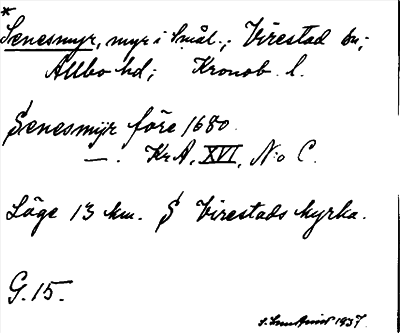 *
Senesmyr, myr i Smål.; Virestad sn;
Allbo hd; Kronob. l.
Senesmÿr före 1680.
—. KrA, XVI, N:o C.
Läge 13 km. S Virestads kyrka.
G. 15.
1937.